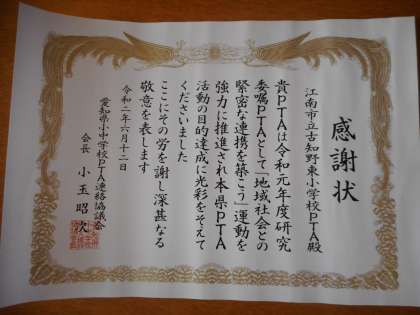 感謝状
江南市立古知野東小学校PTA殿
貴PTAは令和元年度研究
委嘱PTAとして「地域社会との
緊密な連携を築こう」運動を
強力に推進され本県PTA
活動の目的達成に光彩をそえて
くださいました
ここにその労を謝し深甚なる
敬意を表します
令和二年六月十二日
愛知県小中学校PTA連絡協議会
会長 小玉昭次